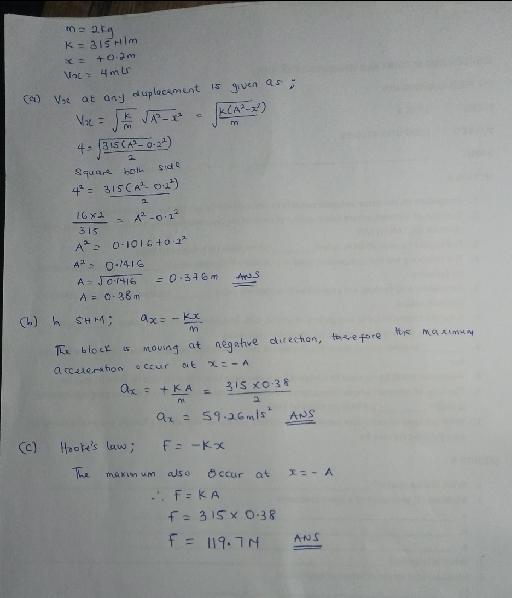 m = 2kg
K = 315 N/m
x = +0.2m
Vx = 4m/s
(a) Vx at any duplacement is given as ;
Vx = √K/m √A²-x² = √K(A²-x²)/m
4 = √315(A²-0.2²)/2
Square both side
4² = 315(A²-0.2²)/2
16x2/315 = A²-0.2²
A² = 0.1016+0.2²
A² = 0.1416
A = √0.1416 = 0.376m ANS
A = 0.38m
(b) In SHM; ax = -Kx/m
The block is moving at negative direction, therefore the maximum
acceleration occur at x = -A
ax = +KA/m = 315 x0.38/2
ax = 59.26m/s² ANS
(c) Hooke's law; F = -Kx
The maximum also Occur at x = -A
∴ F = KA
F = 315 x 0.38
F = 119.7N ANS